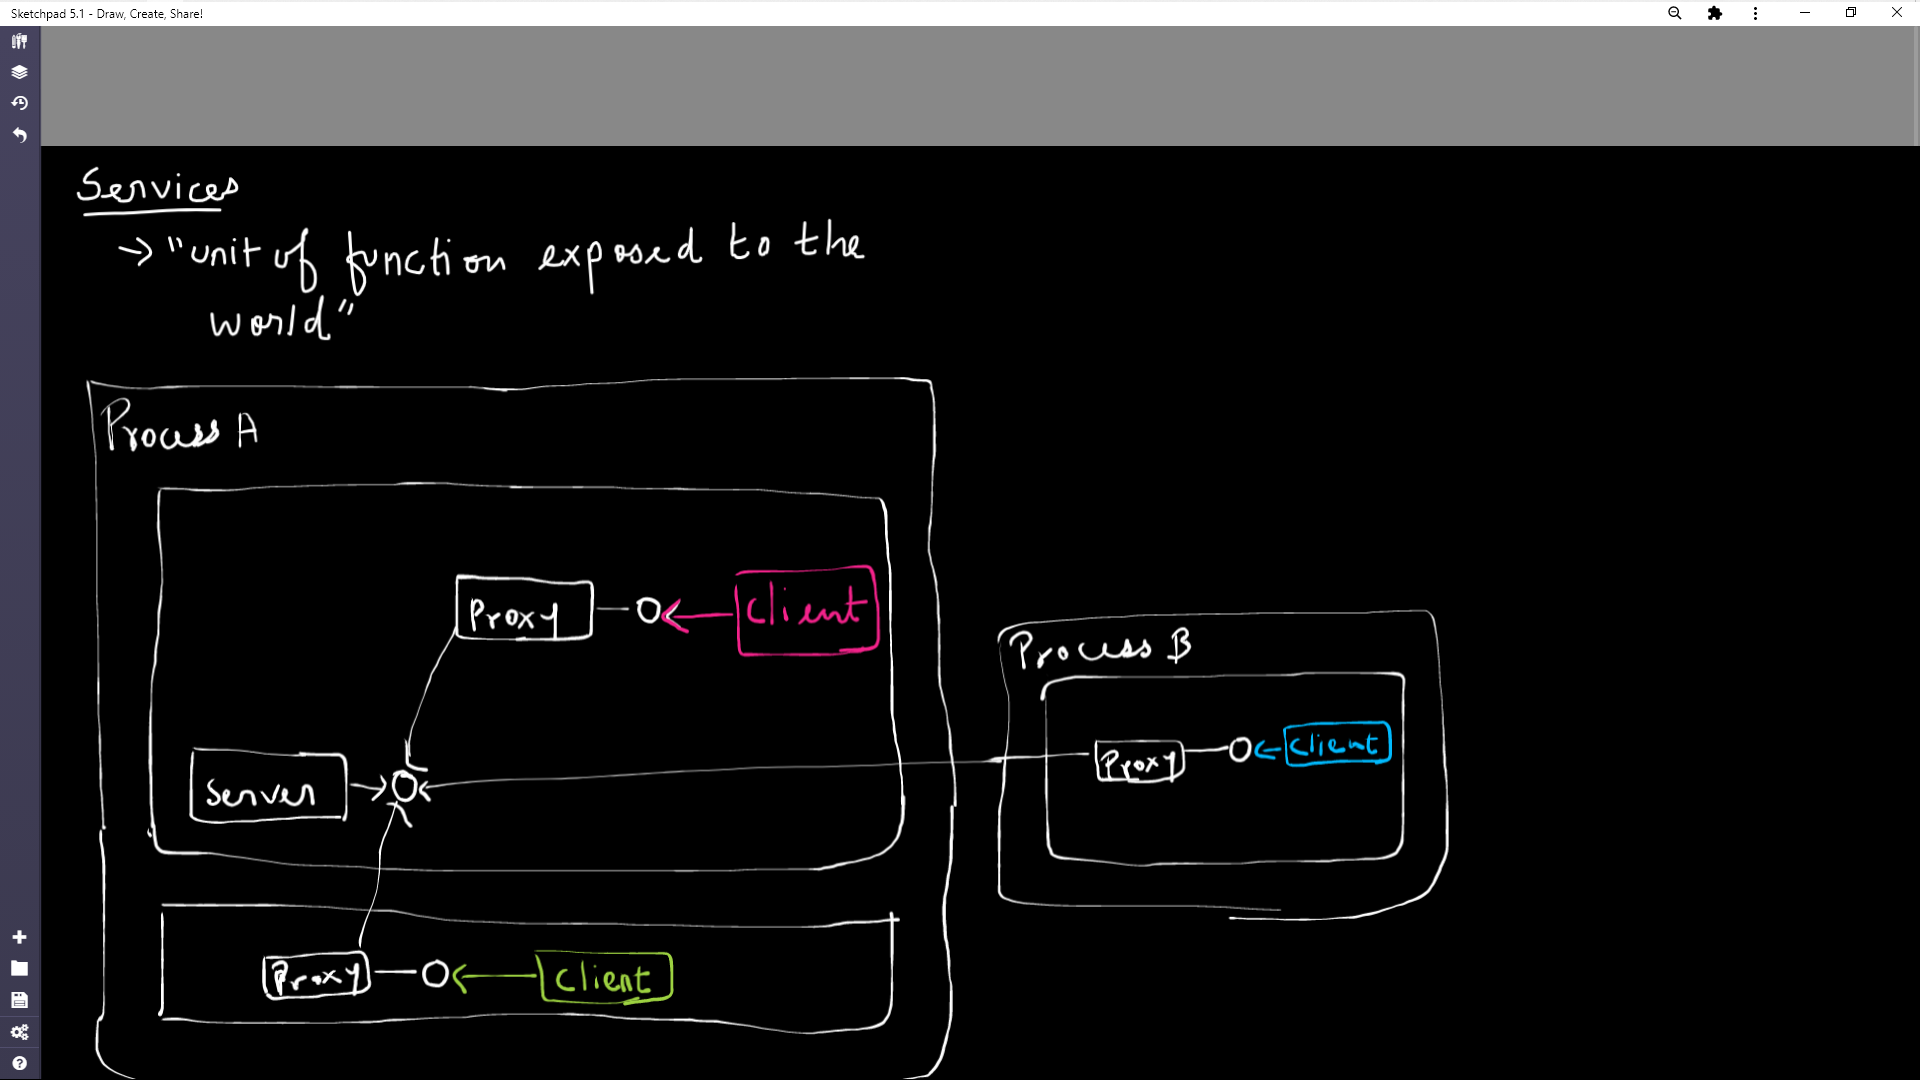 Sketchpad 5.1 - Draw, Create, Share!
Services
→ "unit of function exposed to the
world"
Process A
Proxy
Client
Process B
Proxy
Client
Server
Proxy
Client